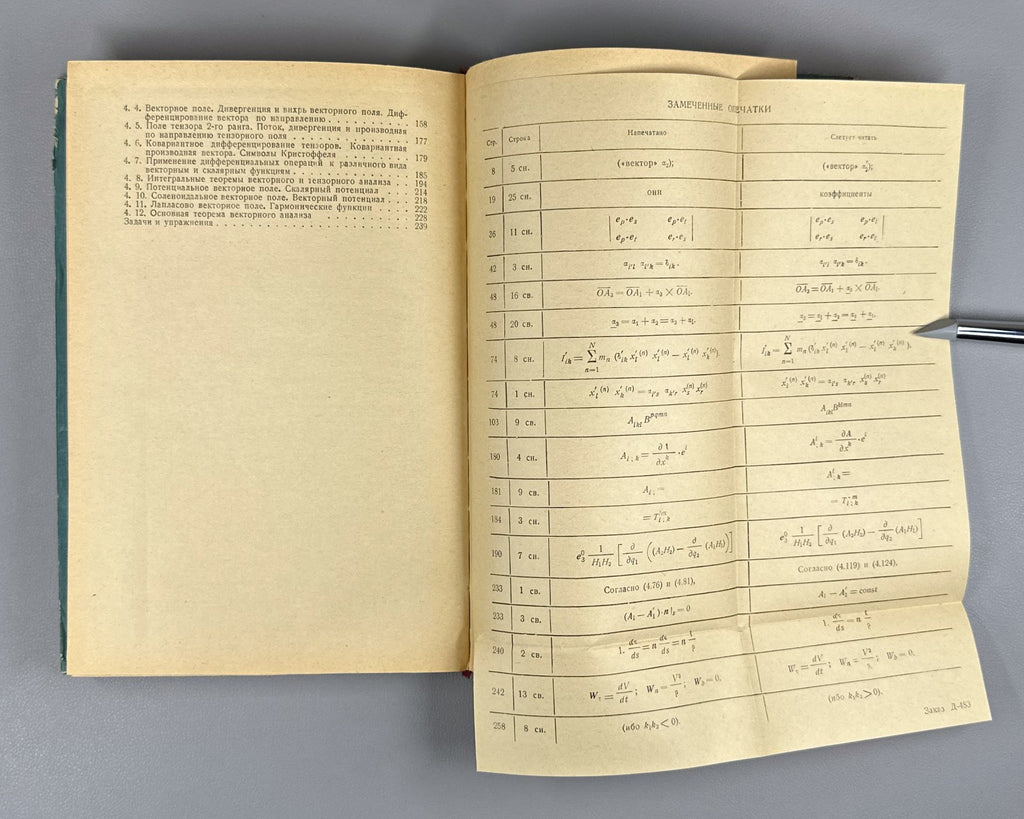 4. 4. Векторное поле. Дивергенция и вихрь векторного поля. Диф-
ференцирование вектора по направлению . . . . . . . . . . 158
4. 5. Поле тензора 2-го ранга. Поток, дивергенция и производная
по направлению тензорного поля . . . . . . . . . . . . . 177
4. 6. Ковариантное дифференцирование тензоров. Ковариантная
производная вектора. Символы Кристоффеля . . . . . . . . 179
4. 7. Применение дифференциальных операций к различного вида
векторным и скалярным функциям . . . . . . . . . . . . . 185
4. 8. Интегральные теоремы векторного и тензорного анализа . . 194
4. 9. Потенциальное векторное поле. Скалярный потенциал . . . 214
4. 10. Соленоидальное векторное поле. Векторный потенциал . . . 218
4. 11. Лапласово векторное поле. Гармонические функции . . . . 222
4. 12. Основная теорема векторного анализа . . . . . . . . . . 228
Задачи и упражнения . . . . . . . . . . . . . . . . . . . . . 239
ЗАМЕЧЕННЫЕ ОПЕЧАТКИ
Стр. Строка Напечатано Следует читать
8 5 сн. («вектор» α₂); («вектор» α₂');
19 25 сн. они коэффициенты
26 11 сн. | e_p·e_s e_p·e_t | | e_p·e_s e_p·e_t |
| e_p·e_t e_r·e_s | | e_r·e_s e_r·e_t |
42 3 сн.
48 16 св. OA₃ = OA₁ + α₃ × OA₁. OA₃ = OA₁ + α₃ × OA₁.
48 20 св. α₃ = α₁ + α₂ = α₂ + α₁. α₃ = α₁ + α₂ = α₂ + α₁.
74 8 сн.
74 1 сн.
103 9 св.
180 4 сн. A_{i;k} = ∂A/∂x^k · e^i A^i_{;k} = ∂A/∂x^k · e^i
181 9 св. A^i_{;k} =
184 3 сн.
190 7 сн. e₃⁰ 1/H₁H₂ [∂/∂q₁ ((A₂H₂) − ∂/∂q₂ (A₁H₁))] e₃⁰ 1/H₁H₂ [∂/∂q₁ (A₂H₂) − ∂/∂q₂ (A₁H₁)]
233 1 св. Согласно (4.76) и (4.81), Согласно (4.119) и (4.124),
233 3 св. (A₁ − A₁')·n|ₛ = 0 A₁ − A₁' = const
240 2 св. 1. dτ/ds = n dτ/ds = n 1/ρ 1. dτ/ds = n 1/ρ
242 13 св. W_τ = dV/dt; W_n = V²/ρ; W_b = 0. W_τ = dV/dt; W_n = V²/ρ; W_b = 0.
258 8 сн. (ибо k₁k₂ < 0). (ибо k₁k₂ > 0),
Заказ Д-483